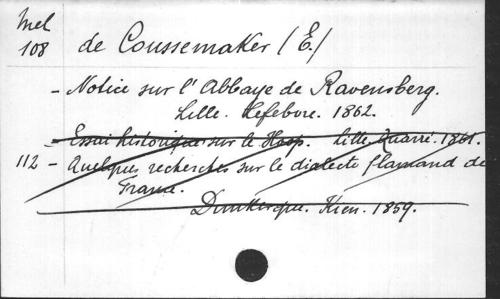 Mel
108 de Coussemaker (E.)
- Notice sur l'Abbaye de Ravensberg.
Lille. Lefebvre. 1862.
- Essai historique sur le Hoop. Lille. Quarré. 1861.
112 - Quelques recherches sur le dialecte flamand de
France.
Dunkerque. Kien. 1859.